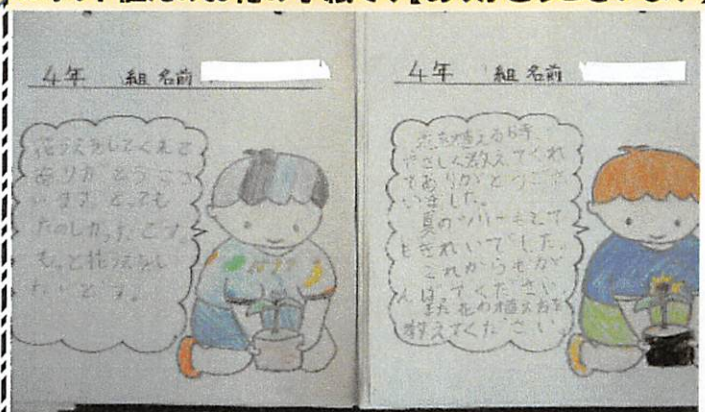 4年 組 名前
花うえをしてくれて
ありがとうござ
います。とっても
たのしかったです。
もっと花うえをし
たいです。
4年 組 名前
花を植える時、
やさしく教えてくれ
てありがとうござ
いました。
とてもきれいでした。
これからもが
んばってください。
また花の植え方を
教えてください。